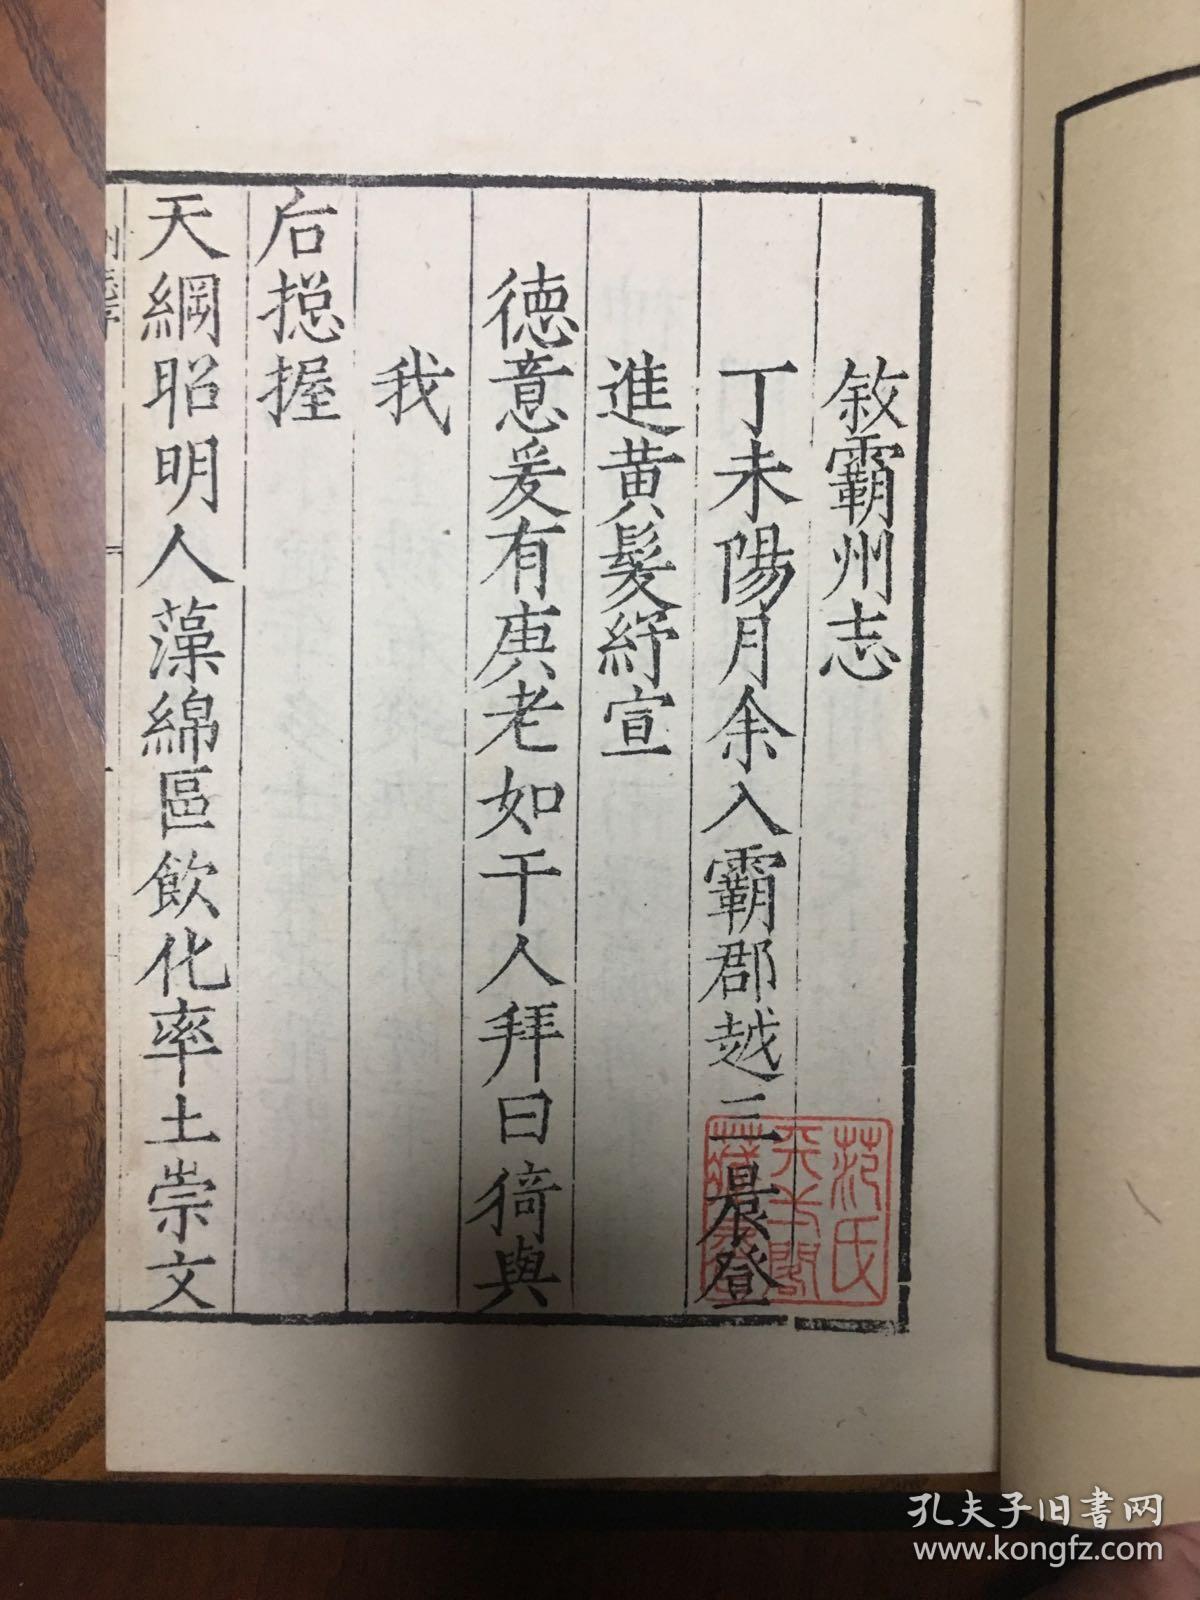 敘霸州志
丁未陽月余入霸郡越三晨登
進黃髮紓宣
德意爰有庚老如干人拜曰猗與
我
后摠握
天綱昭明人藻綿區飲化率土崇文
范氏
天一閣
藏書
孔夫子旧書网
www.kongfz.com